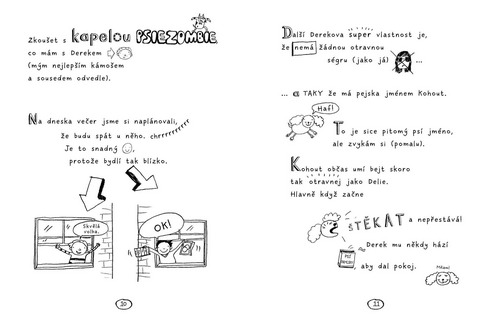 Zkoušet s kapelou PSIEZOMBIE
co mám s Derekem
(mým nejlepším kámošem
a sousedem odvedle).
Na dneska večer jsme si naplánovali,
že budu spát u něho. chrrrrrrrrrr
Je to snadný
protože bydlí tak blízko.
Skvělá
volba.
OK!
10
Další Derekova super vlastnost je,
že nemá žádnou otravnou
ségru (jako já) ...
... a TAKY že má pejska jménem Kohout.
Haf!
To je sice pitomý psí jméno,
ale zvykám si (pomalu).
Kohout občas umí bejt skoro
tak otravnej jako Delie.
Hlavně když začne
ŠTĚKAT a nepřestává!
Derek mu někdy hází
aby dal pokoj.
11